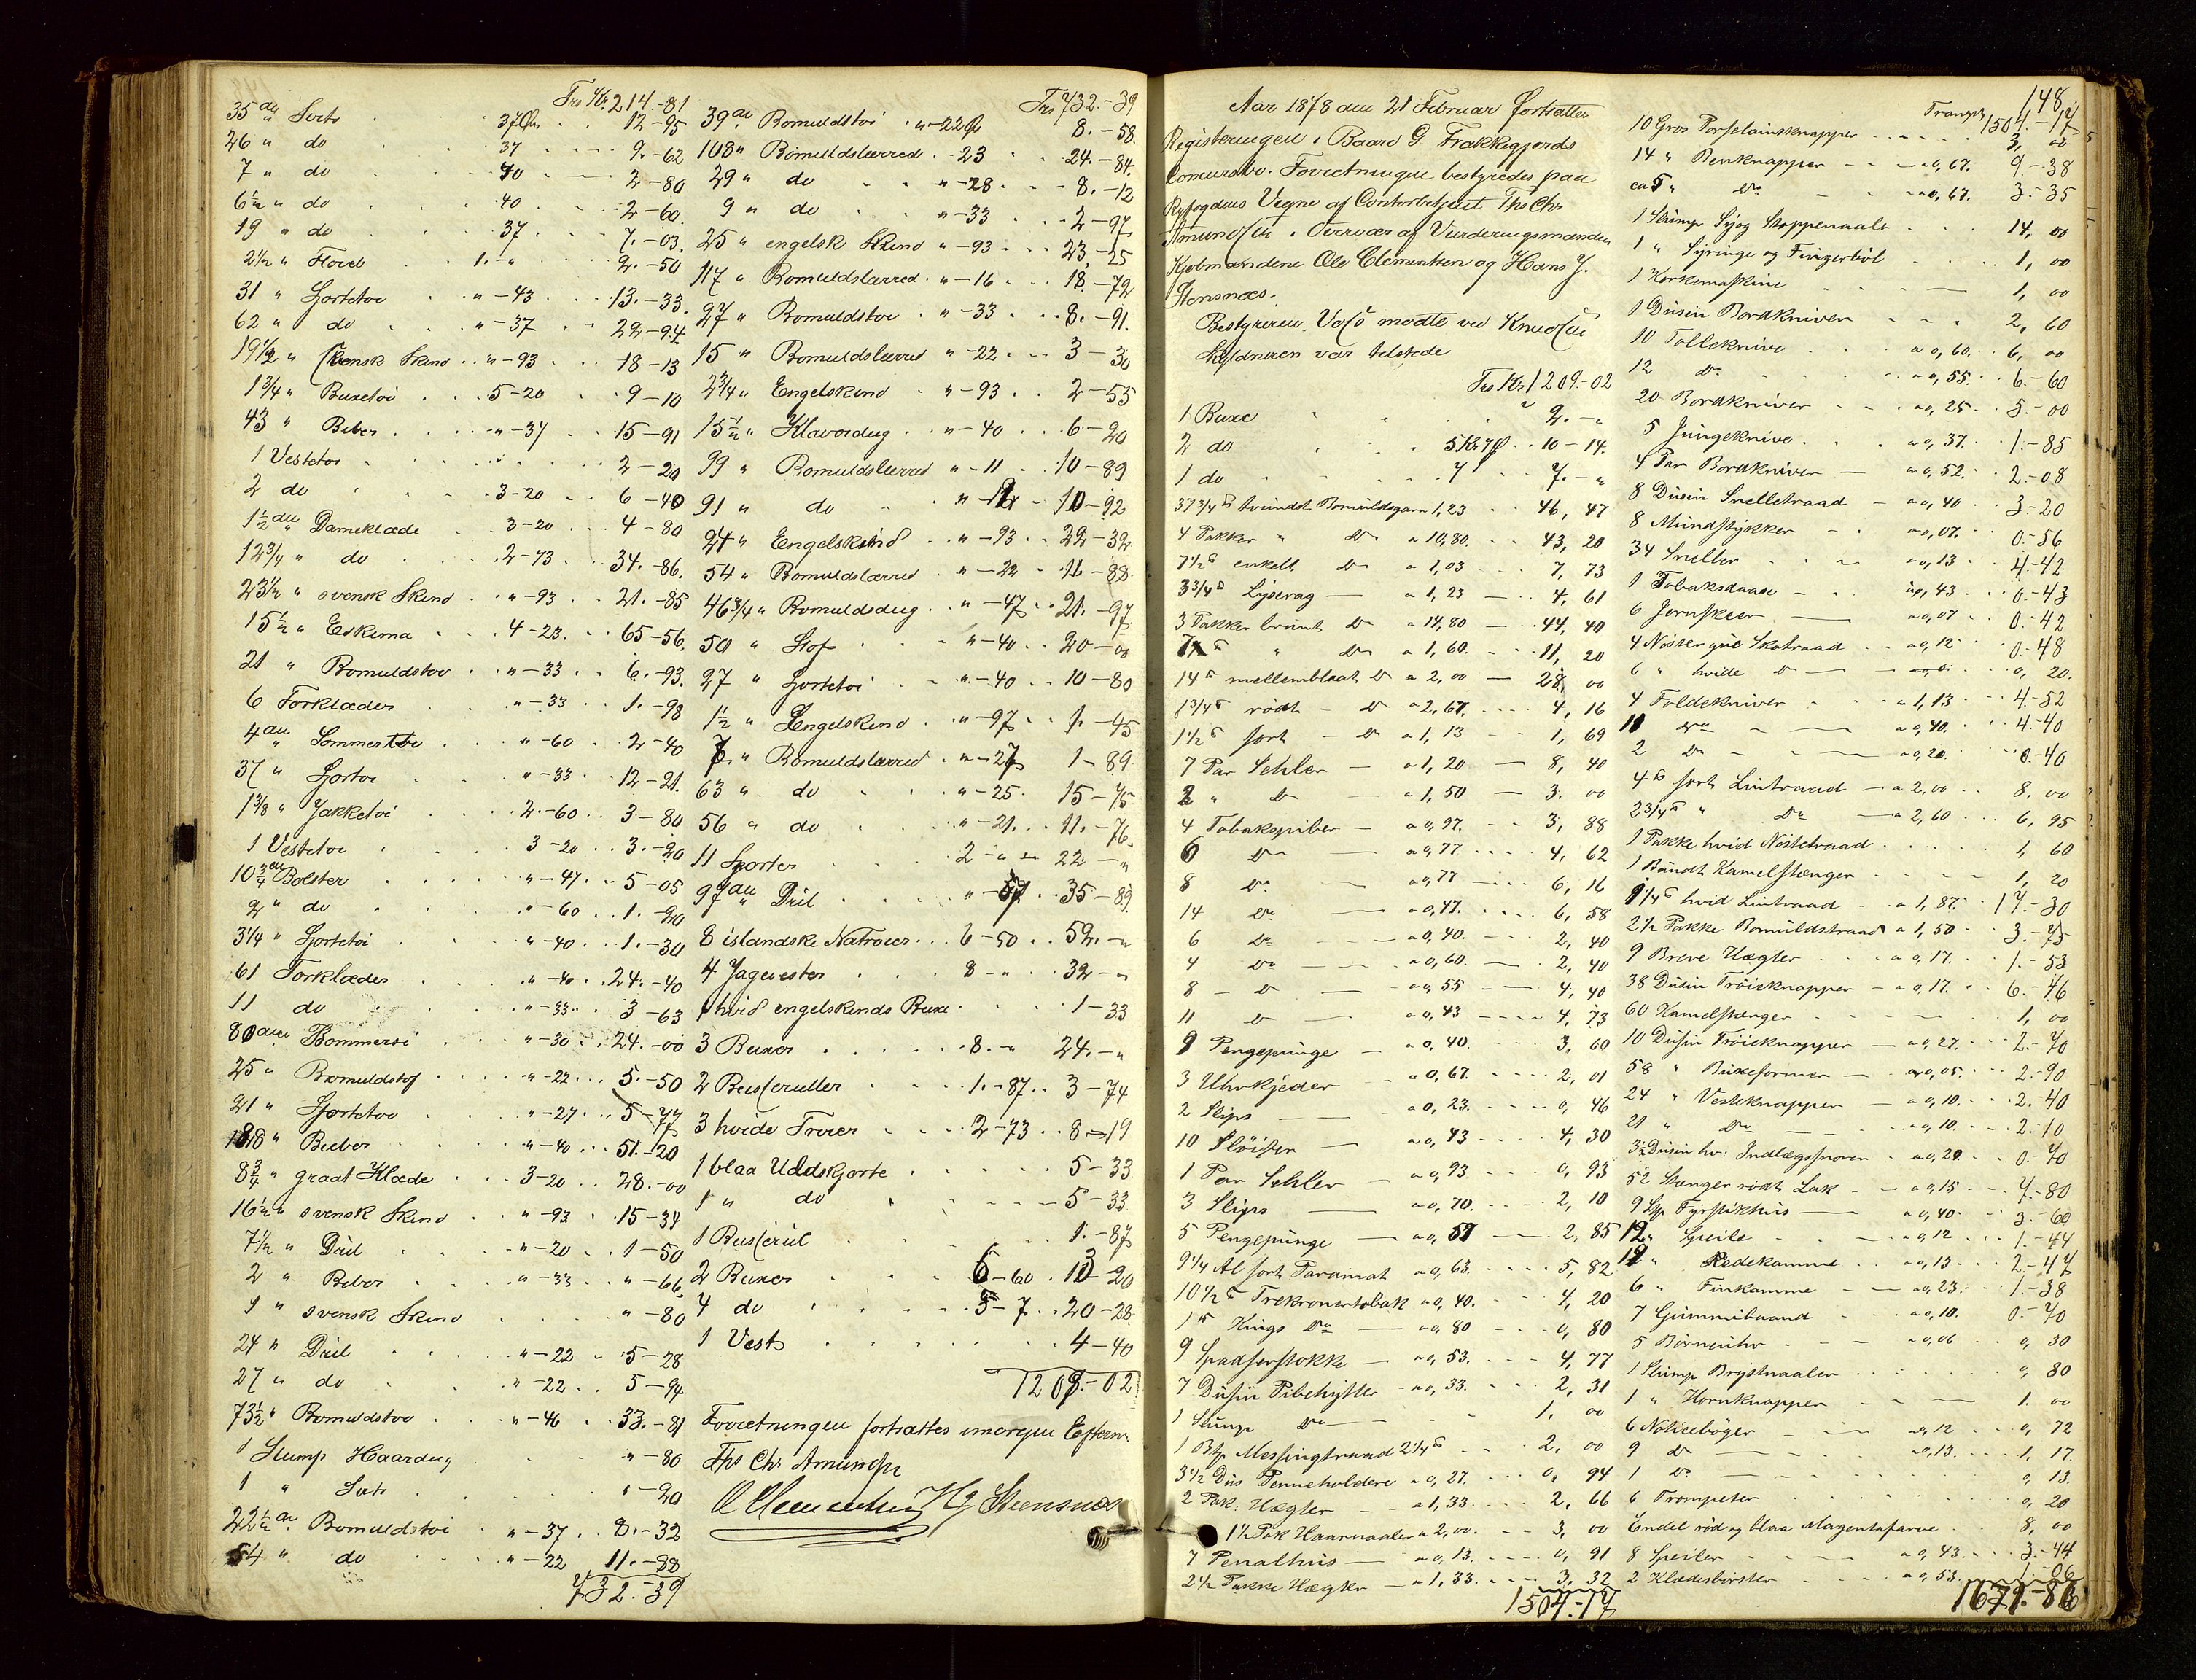 Trs Kr. 214.-81
35 al Sirts 37 Øre 12-95
26 " do 37 9.-62
7 " do 40 2-80
6½ " do 40 2-60
19 " do 37 7.-03
2½ " Floiel 1.-" 2.-50
31 " Sjortetoi "-43 13.-33
62 " do "-37 22-94
19½ " svensk Skind "-93 18-13
1¾ " Buxetoi 5-20 9-10
43 " Biber "-37 15-91
1 Vestetoi 2-20
2 do 3-20 6-40
1½ al Dameklæde 3-20 4-80
12¾ " do 2-73 34.-86.
23½ " svensk Skind "-93 21.-85
15½ " Eskimo 4-23 65-56
21 " Bomuldstoi "-33 6.-93
6 Forklæder "-33 1.-98
4 al Sommertoi "-60 2-40
37 " Sjortoi "-33 12-21
1 3/8 " Jakketoi 2-60 3-80
1 Vestetoi 3-20 3.-20
10¾ al Bolster "-47 5-05
2 " do "-60 1.-20
3¼ " Sjortetoi "-40 1.-30
61 Forklæder "-40 24.-40
11 do "-33 3-63
80 alen Bommesi "-30 24.-00
25 " Bomuldstof "-22 5.-50
21 " Sjortetoi "-27 5-77
128 " Bieber "-40 51.-20
8¾ " graat Klæde 3-20 28.-00
16½ " svensk Skind "-93 15-34
7½ " Dril "-20 1-50
2 " Biber "-33 "-66
1 " svensk Skind "-80
24 " Dril "-22 5-28
27 " do "-22 5-94
73½ " Bomuldstoi "-46 33.-81
1 Slump Haardug "-80
1 " Sirts "-20
22½ al Bomuldstoi "-37 8.-32
54 " do "-22 11.-88
732.-39
Trs 732.-39
39 al Bomuldstoi "-22 Ø 8.-58
108 " Bomuldslærred 23 24.-84
29 " do "-28 8.-12
9 " do "-33 2-97
25 " engelsk Skind "-93 23.-25
117 " Bomuldslærred "-16 18.-72
27 " Bomuldstoi "-33 8.-91
15 " Bomuldslærred "-22 3-30
2¾ " Engelskind "-93 2-55
15½ " Klavordug "-40 6-20
99 " Bomuldslærred "-11 10-89
91 " do "-12 10-92
24 " Engelskind "-93 22-32
54 " Bomuldslærred "-22 11-88
46¾ " Bomuldsdug "-47 21.-97
50 " Stof "-40 20-00
27 " Sjortetoi "-40 10-80
1½ " Engelskind "-97 1.-45
7 " Bomuldslærred "-27 1-89
63 " do "-25 15-75
56 " do "-21 11.-76
11 Sjorter 2-" 22-"
97 al Dril "-37 35-89
8 islandske Natroier 6-50 52.-"
4 Jagevester 8-" 32-"
1 hvid engelskinds Buxe 1-33
3 Buxer 8.-" 24.-"
2 Busseruller 1.-87 3-74
3 hvide Troier 2-73 8-19
1 blaa Uldskjorte 5-33
1 " do 5-33
1 Busserul 1.-87
2 Buxer 6-60 13-20
4 do 5-7 20-28
1 Vest 4-40
1209.-02
Forretningen fortsættes imorgen Efterm.
Ths Chr Amundsen
O Clementsen H J Stensnæs
Aar 1878 den 21 Februar fortsattes
Registeringen i Baard G. Frakkegjerds
Concursbo. Forretningen bestyredes paa
Byfogdens Vegne af Contorbetjent Ths Chr
Amundsen i Overvær af Vurderingsmændene
Kjøbmændene Ole Clementsen og Hans J.
Stensnæs.
Bestyreren, mødte ved Knudsen
Skyldneren var tilstede
Trs Kr 1209.-02
1 Buxe 2.-"
2 do 5 Kr 7 Ø 10-14
1 do 7 7.-"
37¾ ℔ tvundet Bomuldsgarn 1,23 46, 47
4 Pakker " Do a 10,80 43, 20
7½ ℔ enkelt Do a 1,03 7, 73
3¾ ℔ Lysevæg a 1,23 4, 61
3 Pakker brunt Do a 14,80 44, 40
7 ℔ " Do a 1,60 11, 20
14 ℔ mellemblaat Do a 2,00 28, 00
1¾ ℔ rødt Do a 2,67 4, 16
1½ ℔ sort Do a 1,13 1, 69
7 Par Sehler a 1,20 8, 40
2 " Do a 1,50 3. 00
4 Tobakspiber a 0,97 3, 88
6 Do a 0,77 4, 62
8 Do a 0,77 6, 16
14 Do a 0,47 6, 58
6 Do a 0,40 2, 40
4 Do a 0,60 2, 40
8 Do a 0,55 4, 40
11 Do a 0,43 4, 73
9 Pengepunge a 0,40 3, 60
3 Uhrkjeder a 0,67 2, 01
2 Slips a 0,23 0, 46
10 Sløifer a 0,43 4, 30
1 Par Sehler a 0,93 0, 93
3 Slips a 0,70 2, 10
5 Pengepunge a 0,57 2, 85
9¼ Al sort Paramat a 0,63 5, 82
10½ ℔ Trekronertobak a 0,40 4, 20
1 ℔ Kings Do a 0,80 0, 80
9 Spadserstokke a 0,53 4, 77
7 Dusin Pibehytter a 0,33 2, 31
1 Slump Do 1, 00
1 Messingtraad 2¼ ℔ 2, 00
3½ Dus Penneholdere a 0,27 0, 94
2 Pak: Hægter a 1,33 2, 66
1½ Pak Haarnaaler a 2,00 3, 00
7 Penalhus a 0,13 0, 91
2½ Pakke Hægter a 1,33 3, 32
1504.-17
148,
Transp 1504.-17
10 Gros Porselainsknapper 3, 00
14 " Benknapper a 0,67 9.-38
ca 5 " Do a 0,67 3.-35
1 Slump Syog Stoppenaale 14, 00
1 " Syringe og Fingerbøl 1, 00
1 Korkemaskine 1, 00
1 Dusin Bordkniver 2, 60
10 Tolleknive a 0,60 6, 00
12 Do a 0,55 6.-60
20 Bordkniver a 0,25 5.-00
5 Jungeknive a 0,37 1.-85
4 Par Bordkniver a 0,52 2.-08
8 Dusin Snelletraad a 0,40 3-20
8 Mundstykker a 0,07 0.-56
34 Sneller a 0,13 4.-42
1 Tobaksdaase a 0,43 0.-43
6 Jernskeer a 0,07 0.-42
4 Nøster gul Skotraad a 0,12 0.-48
6 " hvide Do 0, 20.
4 Foldekniver a 1,13 4.-52
11 Do a 0,40 4.-40
2 Do a 0,20 0.-40
4 ℔ sort Lintraad a 2,00 8, 00
2¾ ℔ " Do a 2,60 6, 95
1 Pakke hvid Nøstetraad 1, 60
1 Bundt Kamelstænger 1, 20
9¼ ℔ hvid Lintraad a 1,87 17.-30
2½ Pakke Bomuldstraad a 1,50 3.-75
9 Breve Hægter a 0,17 1.-53
38 Dusin Trøieknapper a 0,17 6.-46
60 Kamelstænger 1, 00
10 Dusin Trøieknapper a 0,27 2.-70
58 " Buxeformer a 0,05 2.-90
24 " Vesteknapper a 0,10 2.-40
21 " Do a 0,10 2.-10
3½ Dusin hv: Indlægssnorer a 0,20 0.-70
52 Stænger rødt Lak a 0,15 7.-80
9 Fyrstikhus a 0,40 3.-60
12 " Speile a 0,12 1.-44
19 " Redekamme a 0,13 2.-47
6 " Finkamme a 0,23 1.-38
7 Gummibaand a 0,10 0.-70
5 Børneuhr a 0,06 0, 30
1 Slump Brystnaaler 0, 80
1 " Hornknapper 1. 00
6 Noticebøger a 0,12 0, 72
9 Do a 0,13 1, 17.
1 Do 0, 13.
6 Trompeter 0, 20
Endel rød og blaa Magentafarve 8, 00
8 Speiler a 0,43 3.-44
2 Klædesbørster a 0,53 1.-06
1671.-86